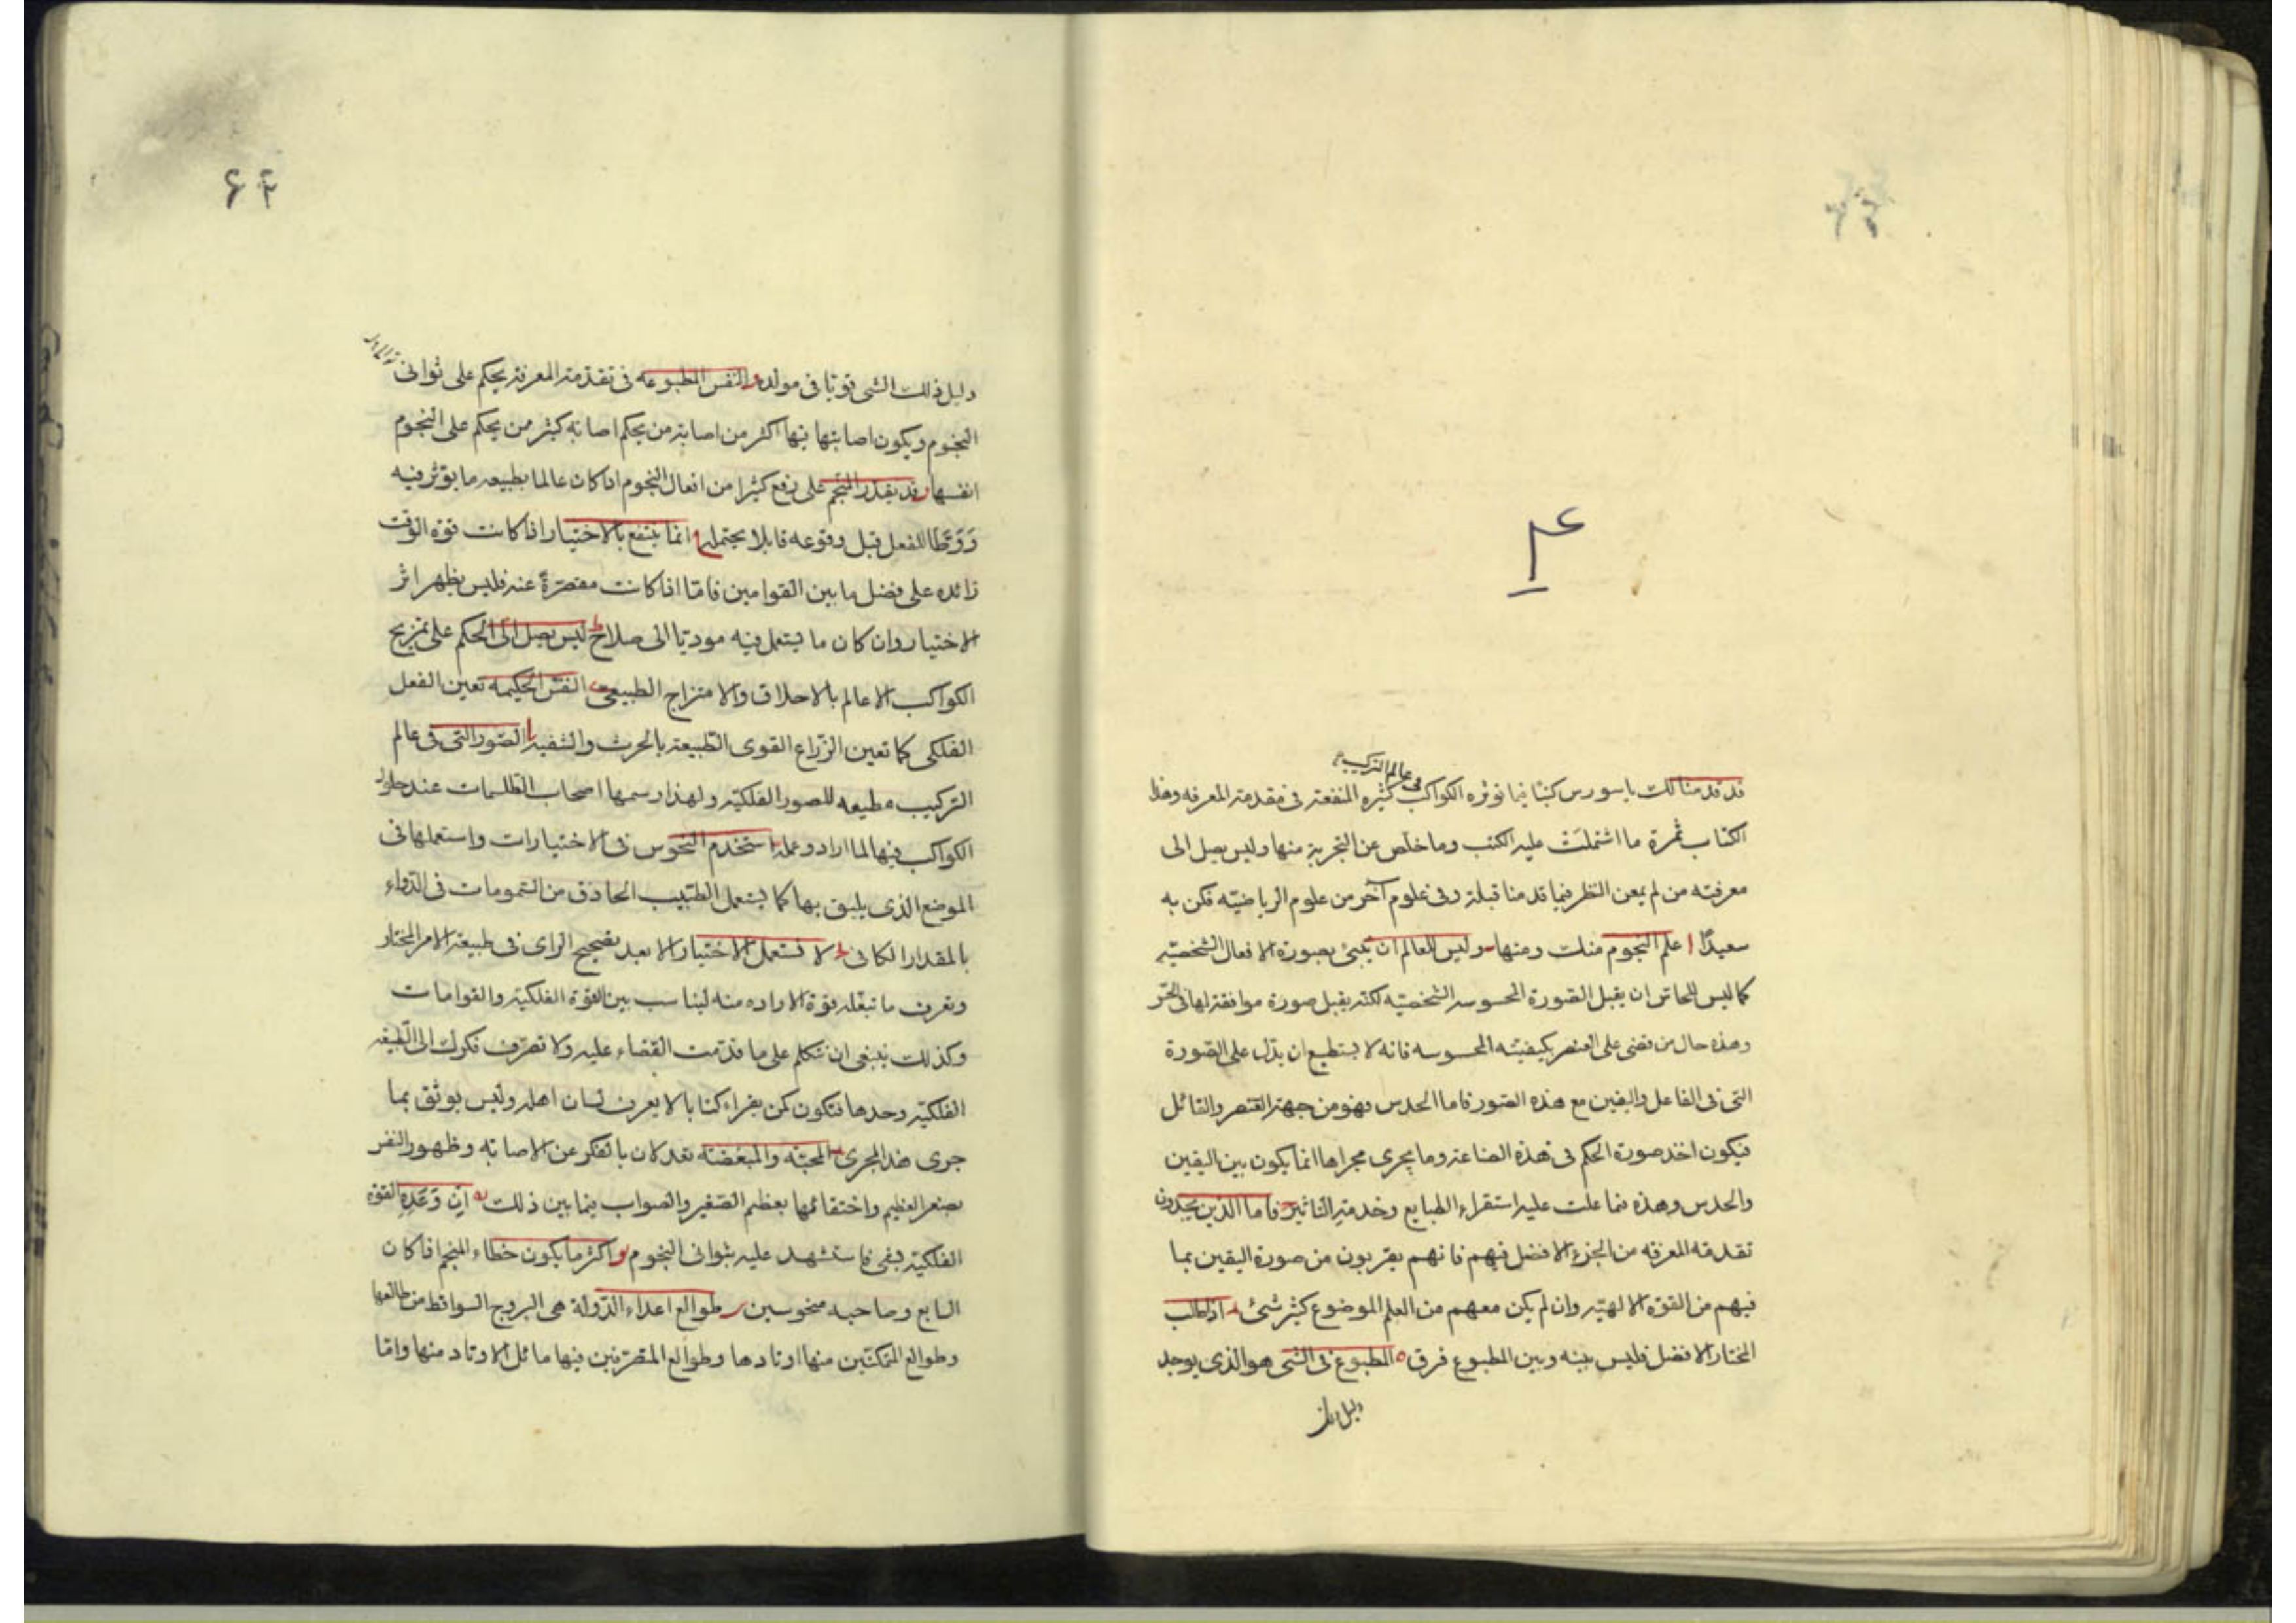 ۴
في عالم التركيب
قد قدمنا لك يا سورس كتبا فيما توثره الكواكب كثيره المنفعة فى مقدمة المعرفه وهذا
الكتاب ثمرة ما اشتملت عليه الكتب وما خلص عن التجربة منها وليس يصل الى
معرفته من لم يمعن النظر فيما قدمنا قبله وفى علوم آخر من علوم الرياضيّه فكن به
سعيدًا ا علم النجوم منك ومنها ب وليس للعالم ان ينبئ بصورة الافعال الشخصيّة
كما ليس للحاسّ ان يقبل الصّورة المحسوسه الشخصيّه لكنّه يقبل صورة موافقة لها فى الحسّ
وهذه حال من قضى على العنصر بكيفيّته المحسوسه فانه لا يستطيع ان يدلّ على الصّورة
التى فى الفاعل واليقين مع هذه الصّور فاما الحدس فهو من جهة العنصر والقائل
فيكون اخذ صورة الحكم فى هذه الصّناعة وما يجرى مجراها انما يكون بين اليقين
والحدس وهذه فما علت عليه استقراء الطبايع وخدمة التاثير ج فاما الذين يجدون
تقدمة المعرفه من الجزء الافضل فيهم فانهم يقربون من صورة اليقين بما
فيهم من القوّة الالهيّة وان لم يكن معهم من العلم الموضوع كثير شئ د اذا طلب
المختار الافضل فليس بينه وبين المطبوع فرق ه المطبوع فى الشى هو الذى يوجد
دليل ذلك
۶۲
دليل ذلك الشى قويّا فى مولده و النفس المطبوعه فى تقدّمة المعرفة يحكم على ثوانى
النجوم ويكون اصابتها فيها اكثر من اصابة من يحكم اصابه كثير من يحكم على النجوم
انفسها ز قد يقدر المنجّم على دفع كثيرا من افعال النجوم اذا كان عالما بطبيعه ما يوثر فيه
وَوَطّا للفعل قبل وقوعه قابلا يحتمله ح انما ينتفع بالاختيار اذا كانت قوّة الوقت
زائده على فضل ما بين القوامين فامّا اذا كانت مقصّرةً عنه فليس يظهر اثر
الاختيار وان كان ما يستعمل فيه موديّا الى صلاح ط ليس يصل الى الحكم على تمزيج
الكواكب الا عالم بالاخلاق والامتزاج الطبيعى ى النفس الحكيمه تعين الفعل
الفلكى كما تعين الزّراع القوى الطّبيعة بالحرث والتنقية يا الصّور التى فى عالم
التركيب مطيعه للصور الفلكيّة ولهذا رسمها اصحاب الطّلسمات عند حلول
الكواكب فيها لما ارادوا عمله استخدم النحوس فى الاختيارات واستعملها فى
الموضع الذى يليق بها كما يستعمل الطّبيب الحاذق من السّمومات فى الدّواء
بالمقدار الكافى لا تستعمل الاختيار الا بعد تصحيح الراى فى طبيعة الامر المختار
وتعرف ما تبلغه قوّة الاراده منه ليناسب بين القوّة الفلكيّة والقوامات
وكذلك ينبغى ان تتكلم على ما قدّمت القضاء عليه ولا تصرّف فكرك الى الطّبيعة
الفلكيّة وحدها فتكون كمن يقراء كتابا لا يعرف لسان اهله وليس يوثق بما
جرى هذا المجرى المحبّه والمبغضه تعدلان بالفكر عن الاصابه وظهور النفر
بصغر العظيم واختفائها بعظم الصّغير والصواب فيما بين ذلك يه ان وَعَدَهِ القوّة
الفلكيّة بشى فاستشهد عليه بثوانى النجوم يو اكثر ما يكون خطاء المنجم اذا كان
السابع وصاحبه منحوسين يز طوالع اعداء الدّولة هى البروج السواقط من طالعها
وطوالع المتمكنّين منها اوتادها وطوالع المتصرّفين فيها مائل الاوتاد منها وامّا